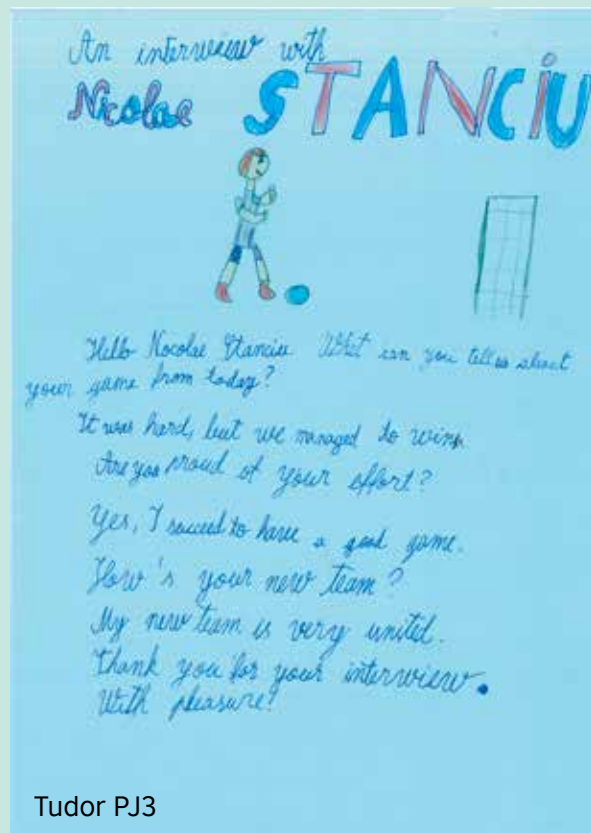 An interwiew with
Nicolae STANCIU
Hello Nocolae Stanciu What can you tell us about
your game from today?
It was hard, but we managed to win.
Are you proud of your effort?
Yes, I succed to have a good game.
How's your new team?
My new team is very united.
Thank you for your interwiew.
With pleasure!
Tudor PJ3